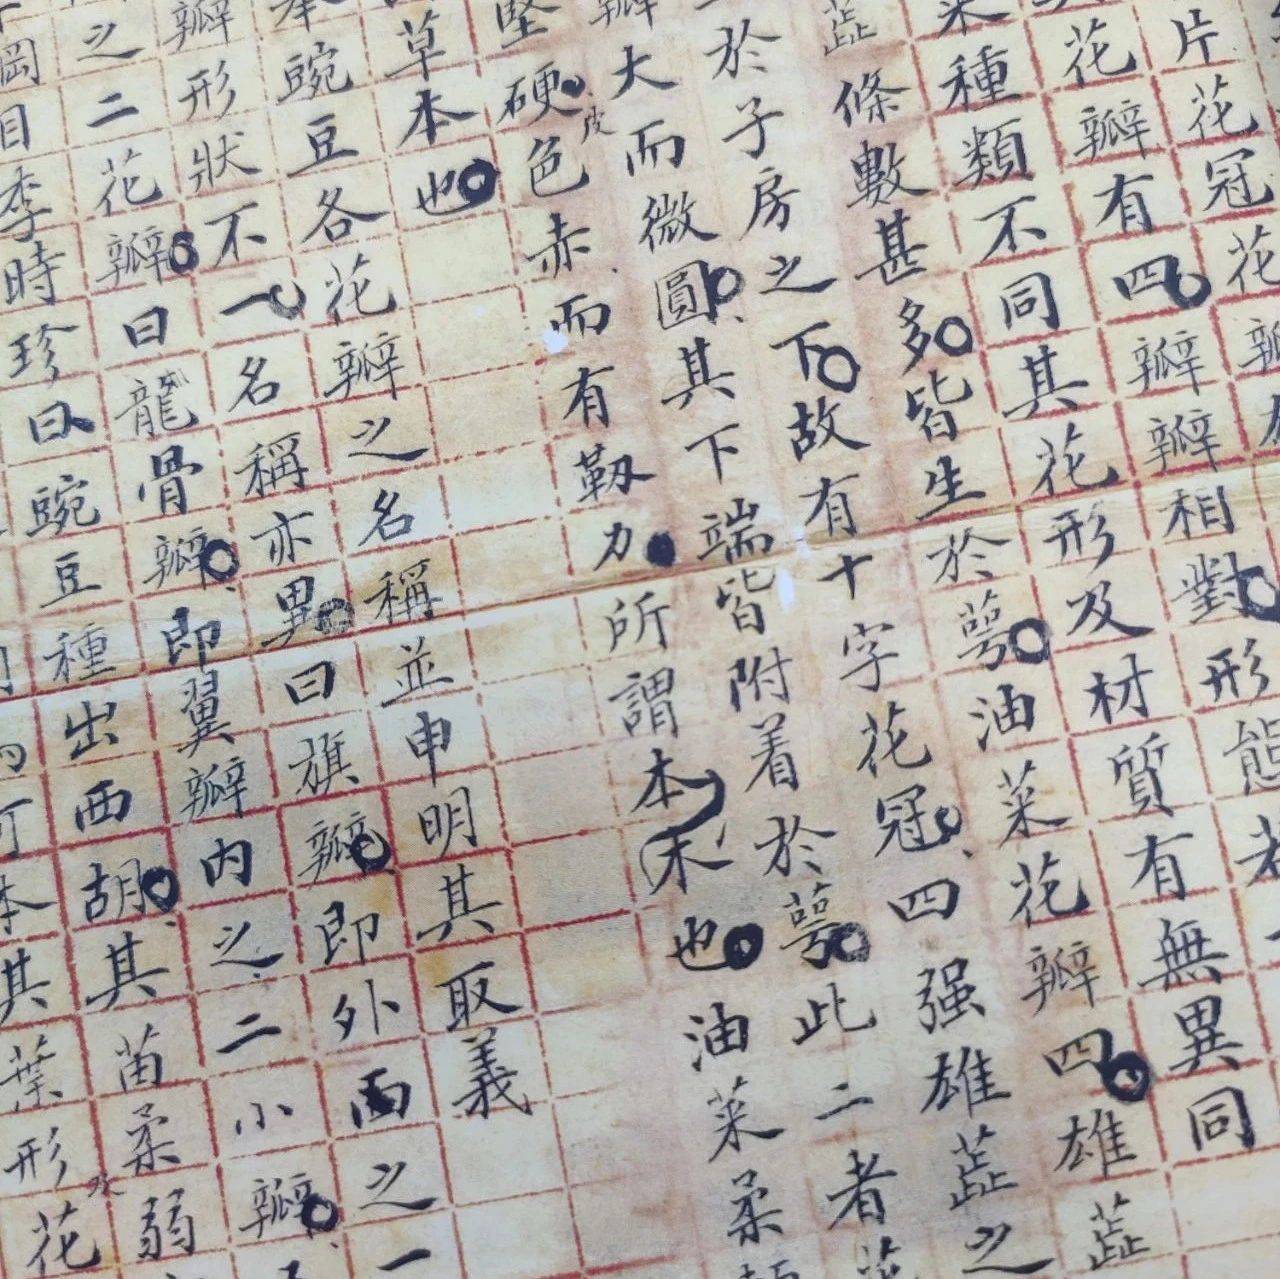 片花冠花瓣
花瓣有四瓣瓣相對形態若
菜種類不同其花形及材質有無異同
蕋條數甚多皆生於萼油菜花瓣四雄蕋
於子房之下故有十字花冠四强雄蕋之
瓣大而微圓其下端皆附着於萼此二者
堅硬皮色赤而有韌力所謂本木也油菜柔
草本也
豌豆各花瓣之名稱並申明其取義
瓣形狀不一名稱亦異曰旗瓣即外面之一
之二花瓣曰龍骨瓣即翼瓣内之二小瓣
目李時珍曰豌豆種出西胡其苗柔弱
本其葉形花